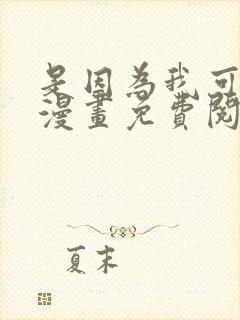 是因為我可
漫畫免費閱
夏末